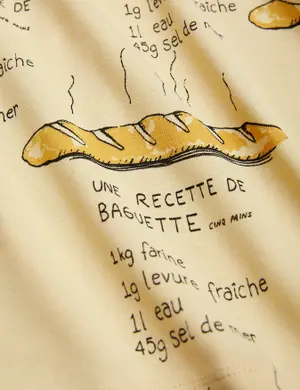 UNE RECETTE DE
1g levure fraîche
1l eau
45g sel de mer
UNE RECETTE DE
BAGUETTE CINQ MINS
1kg farine
1g levure fraîche
1l eau
45g sel de mer